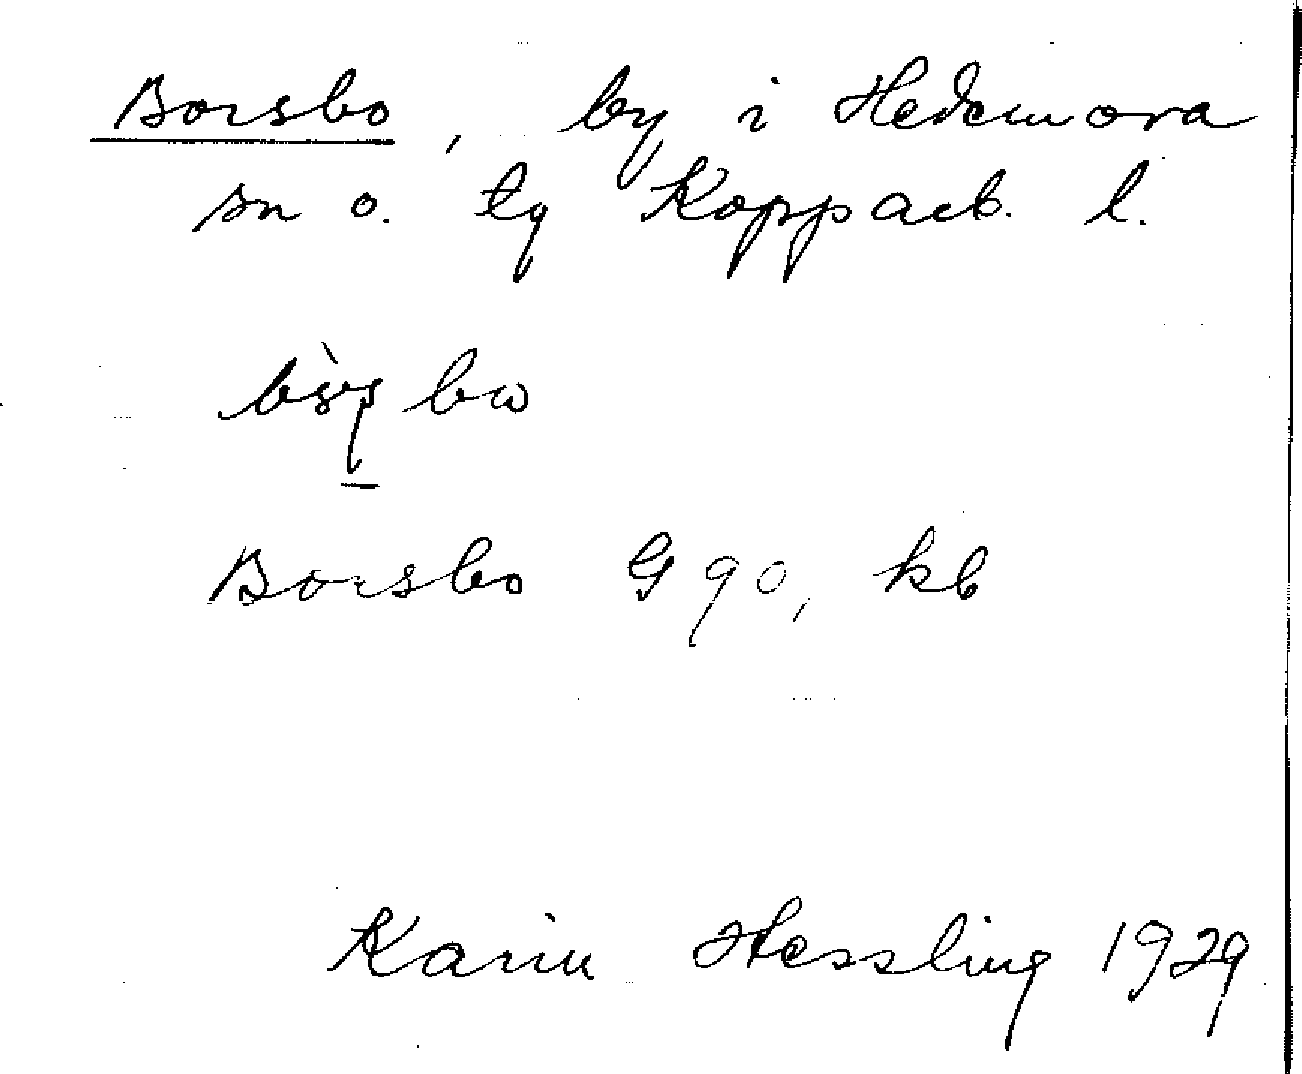 Borsbo, by i Hedemora
sn o. tg Koppaeb. l.
Borsbo G 90, kb
Karin Hessling 1929